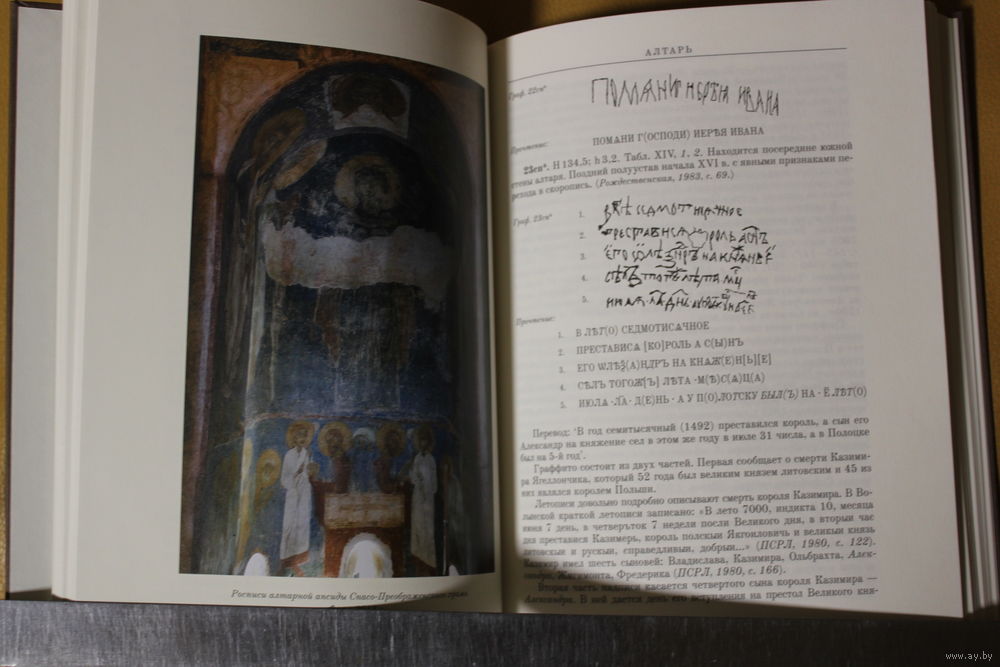 Росписи алтарной апсиды Спасо-Преображенского храма
АЛТАРЬ
Граф. 22сп*
ПОМѦНИ ИЕРѢѦ ИВАНА
Прочтение:
ПОМѦНИ Г(ОСПОДИ) ИЕРѢѦ ИВАНА
23сп*. Н 134,5; h 3,2. Табл. XIV, 1, 2. Находится посередине южной
стены алтаря. Поздний полуустав начала XVI в. с явными признаками пе-
рехода в скоропись. (Рождественская, 1983, с. 69.)
Граф. 23сп*
1.
2.
3.
4.
5.
Прочтение:
1. В ЛѢТ(О) СЕДМОТИСѦЧНОЕ
2. ПРЕСТАВИСѦ [КО]РОЛЬ А С(Ы)НЪ
3. ЕГО ѠЛѢѮ(А)НДРЪ НА КНѦЖ(Е)Н[Ь][Е]
4. СѢЛЪ ТОГОЖ[Ъ] ЛѢТА ·М(Ѣ)С(Ѧ)Ц(А)
5. ИЮЛѦ ·ЛА· Д(Е)НЬ · А У П(О)ЛОТСКУ БЫЛ(Ъ) НА · Ё ЛѢТ(О)
Перевод: ‘В год семитысячный (1492) преставился король, а сын его
Александр на княжение сел в этом же году в июле 31 числа, а в Полоцке
был на 5-й год’.
Граффито состоит из двух частей. Первая сообщает о смерти Казими-
ра Ягеллончика, который 52 года был великим князем литовским и 45 из
них являлся королем Польши.
Летописи довольно подробно описывают смерть короля Казимира. В Во-
лынской краткой летописи записано: «В лето 7000, индикта 10, месяца
июня 7 день, в четверъток 7 недели посли Великого дня, в вторыи час
дня преставися Казимеръ, король полскыи Якгоиловичь и великыи князь
литовскыи и рускыи, справедливыи, добрыи...» (ПСРЛ, 1980, с. 122).
Казимер имел шесть сыновей: Владислава, Казимира, Ольбрахта, Алек-
сандра, Жигимонта, Фредерика (ПСРЛ, 1980, с. 166).
Вторая часть надписи касается четвертого сына короля Казимира —
Александра. В ней дается день его вступления на престол Великого кня-
www.ay.by